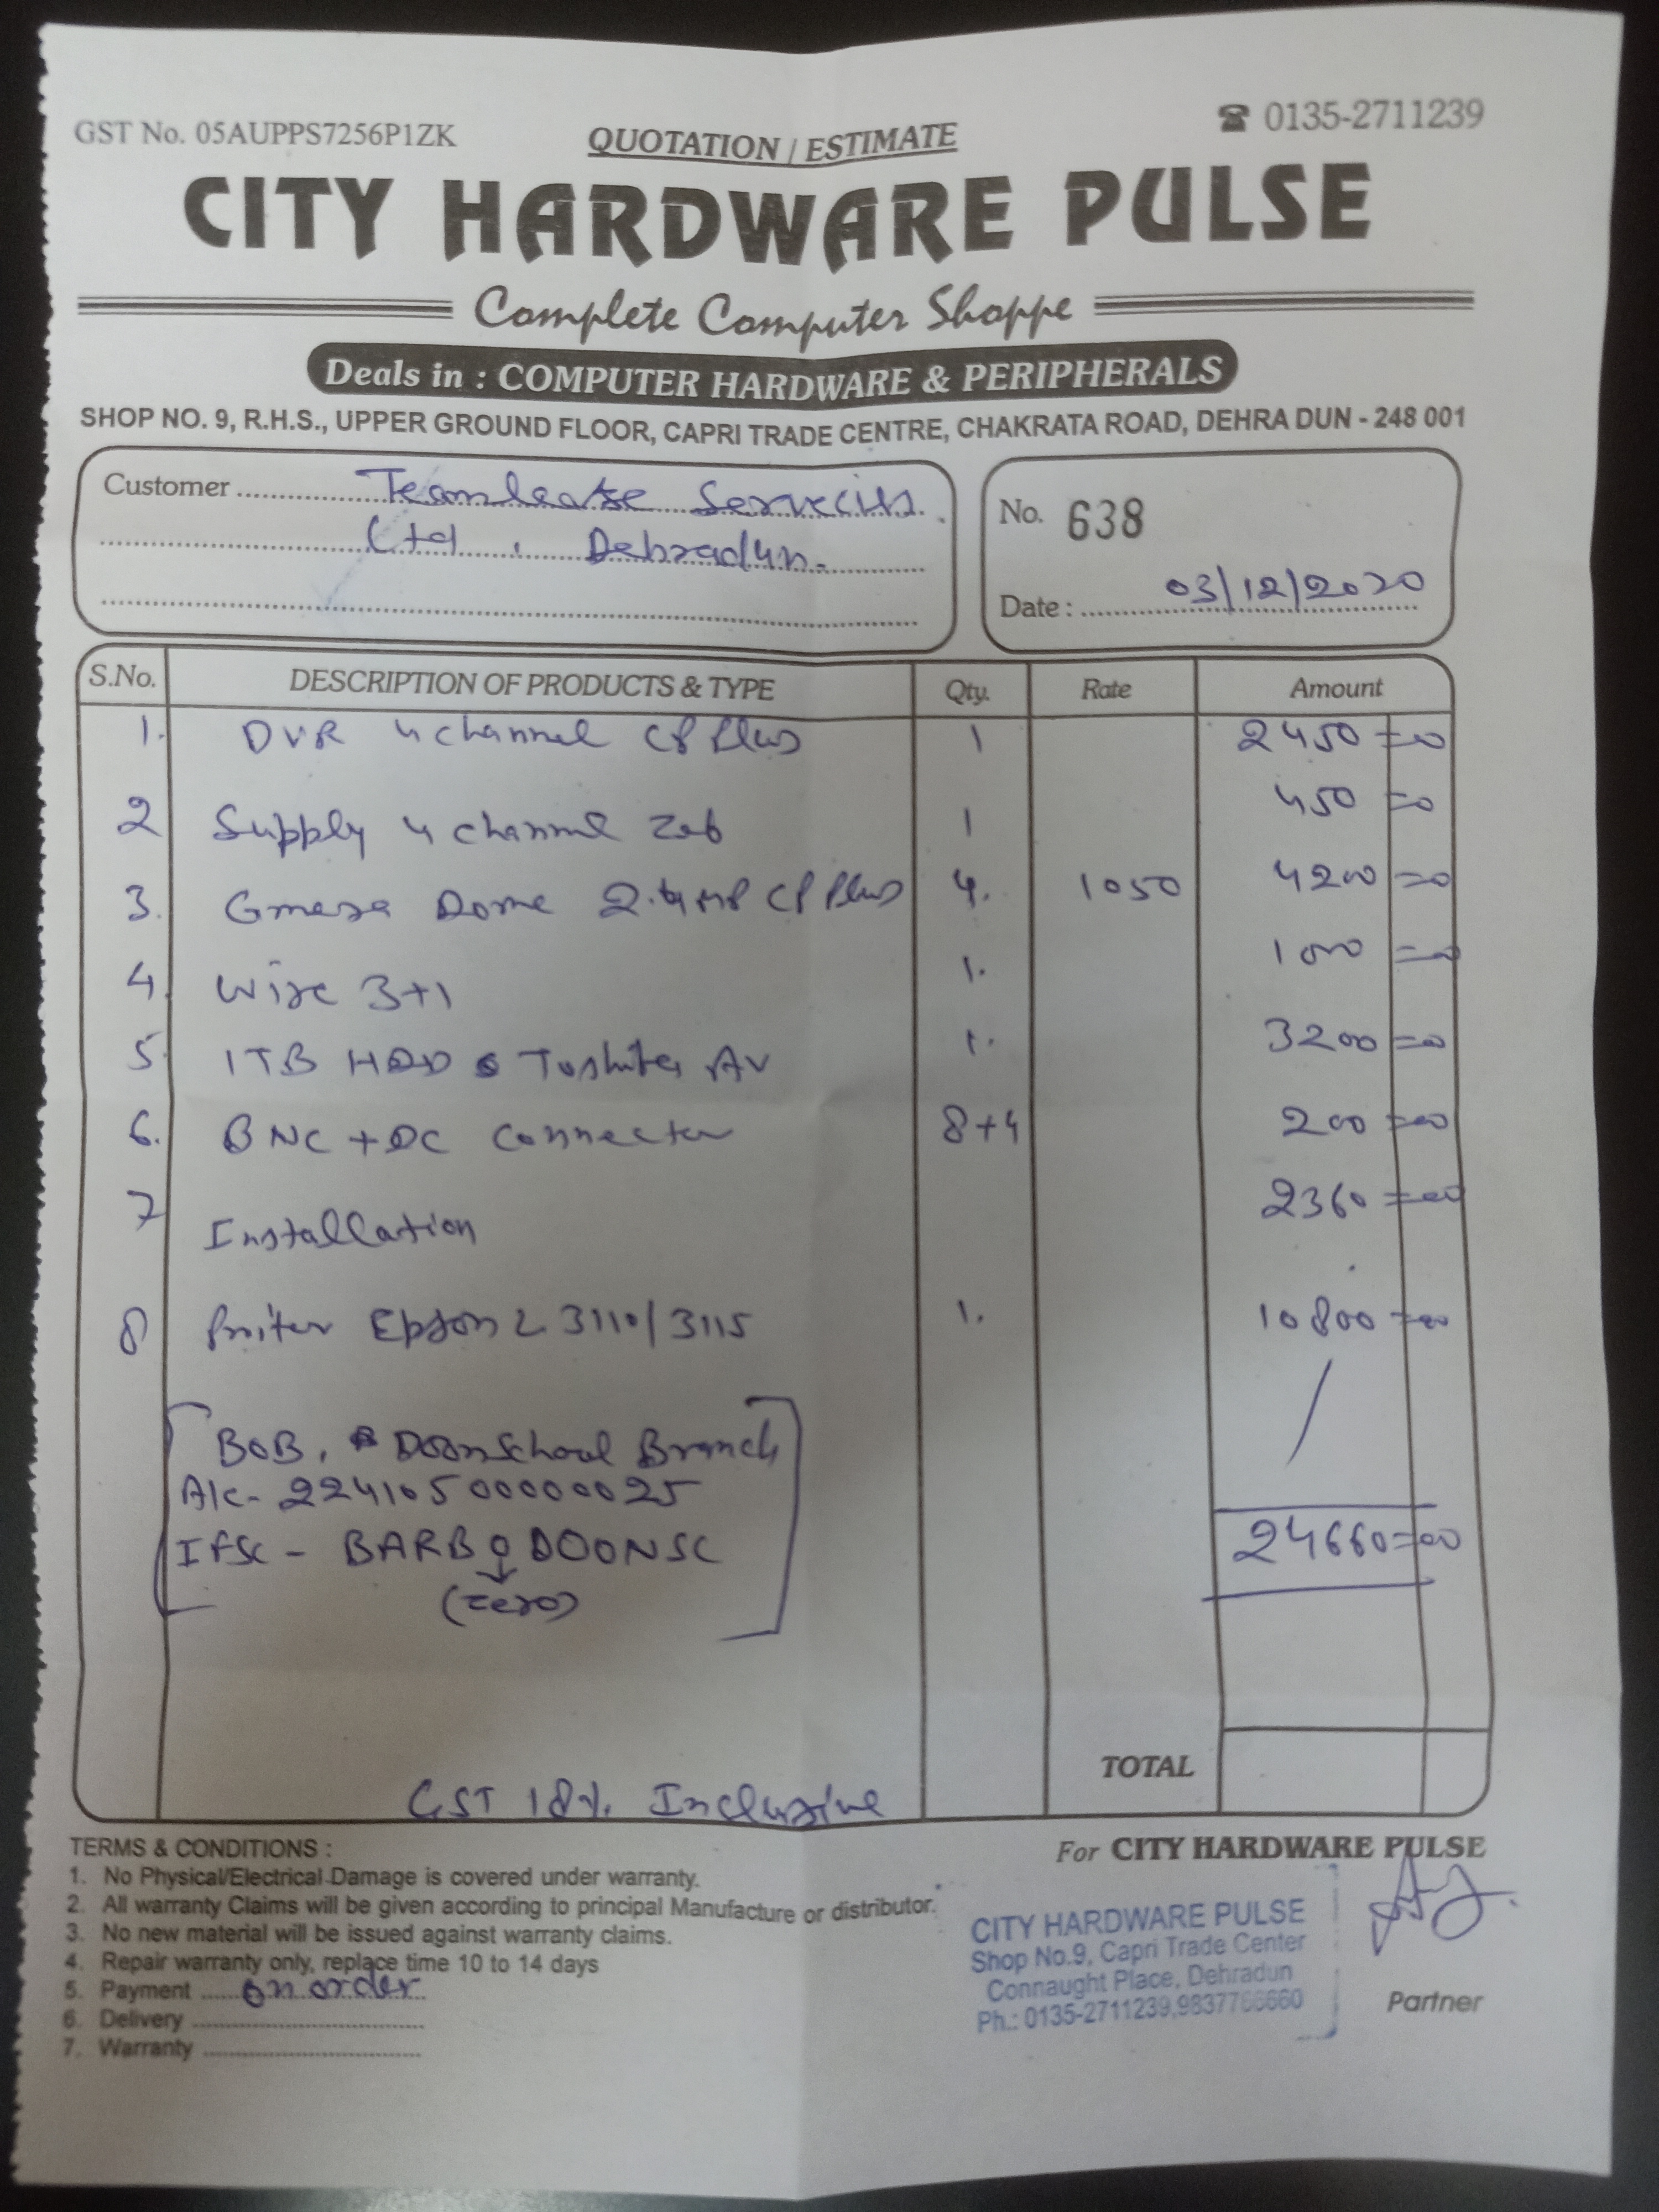 GST No. 05AUPPS7256P1ZK QUOTATION / ESTIMATE ☎ 0135-2711239
CITY HARDWARE PULSE
Complete Computer Shoppe
Deals in : COMPUTER HARDWARE & PERIPHERALS
SHOP NO. 9, R.H.S., UPPER GROUND FLOOR, CAPRI TRADE CENTRE, CHAKRATA ROAD, DEHRA DUN - 248 001
Customer Teamlease Servecies
Ltd , Dehradun.
No. 638
Date : 03/12/2020
S.No. DESCRIPTION OF PRODUCTS & TYPE Qty. Rate Amount
1. DVR 4 channel CP Plus 1 2450=00
2 Supply 4 channel Zeb 1 450=00
3. Cmera Dome 2.4MP CP Plus 4. 1050 4200=00
4. Wire 3+1 1. 1000=00
5 1TB HDD Toshiba AV 1. 3200=00
6. BNC + DC Connector 8+4 200=00
7 Installation 2360=00
8 Priter Epson L 3110/3115 1. 10800=00
BOB, Doonschool Branch
A/c- 22410500000025
IFSC - BARB0DOONSC
(zero)
24660=00
TOTAL
GST 18% Inclusive
TERMS & CONDITIONS :
1. No Physical/Electrical Damage is covered under warranty.
2. All warranty Claims will be given according to principal Manufacture or distributor.
3. No new material will be issued against warranty claims.
4. Repair warranty only, replace time 10 to 14 days
5. Payment on order
6. Delivery
7. Warranty
For CITY HARDWARE PULSE
CITY HARDWARE PULSE
Shop No.9, Capri Trade Center
Connaught Place, Dehradun
Ph.: 0135-2711239,9837766660
Partner